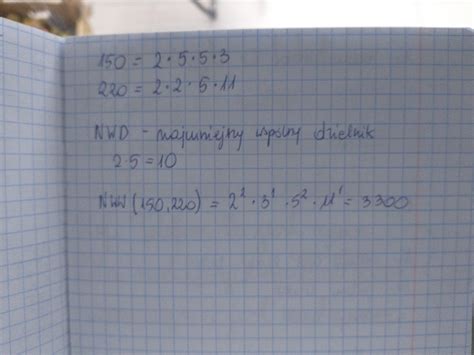 150 = 2 · 5 · 5 · 3
220 = 2 · 2 · 5 · 11
NWD - najmniejny wspólny dzielnik
2 · 5 = 10
NWW (150, 220) = 2² · 3¹ · 5² · 11¹ = 3300